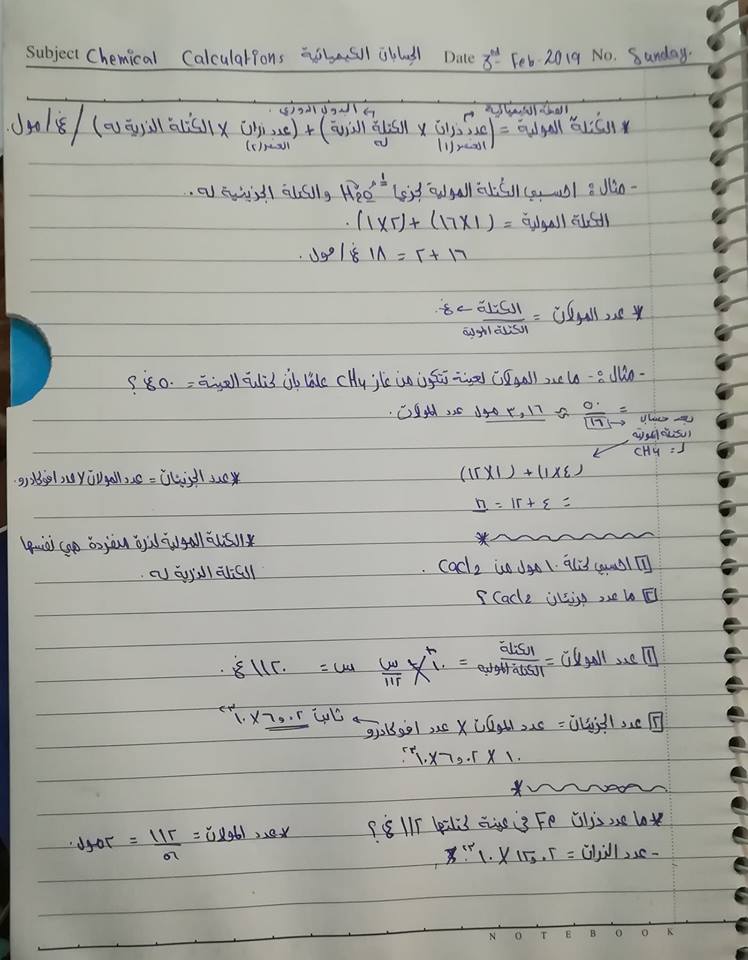 Subject Chemical Calculations الحسابات الكيميائية Date 3rd Feb-2019 No. Sunday.
الصيغة الكيميائية ← الجدول الدوري
* الكتلة المولية = (عدد ذرات × الكتلة الذرية) + (عدد ذرات × الكتلة الذرية له) / غ/مول.
العنصر(١) له العنصر(٢)
- مثال : احسبي الكتلة المولية لجزيء H2O و الكتلة الجزيئية له.
الكتلة المولية = (١×١٦) + (٢×١).
١٦ + ٢ = ١٨ غ/مول.
* عدد المولات = الكتلة ← غ.
الكتلة المولية
- مثال :- ما عدد المولات لعينة تتكون من غاز CH4 علمًا بأن كتلة العينة = ٥٠غ ؟
= ٥٠ / ١٦ ≈ ٣,١٦ مول عدد المولات.
بعد حساب الكتلة المولية
لـ CH4
(٤×١) + (١×١٢)
= ٤ + ١٢ = ١٦
* عدد الجزيئات = عدد المولات × عدد افوكادرو.
* الكتلة المولية لذرة منفردة هي نفسها
الكتلة الذرية له.
*
[١] احسبي كتلة ١٠ مول من CaCl2.
[٢] ما عدد جزيئات CaCl2 ؟
[١] عدد المولات = الكتلة / الكتلة المولية = ١٠ س / ١١٢ س = ١١٢٠ غ.
[٢] عدد الجزيئات = عدد المولات × عدد افوكادرو ← ثابت ٦,٠٢ × ١٠^٢٣
١٠ × ٦,٠٢ × ١٠^٢٣.
*
* ما عدد ذرات Fe في عينة كتلتها ١١٢ غ ؟
* عدد المولات = ١١٢ / ٥٦ = ٢ مول.
- عدد الذرات = ١٢,٠٢ × ١٠^٢٣.
NOTEBOOK